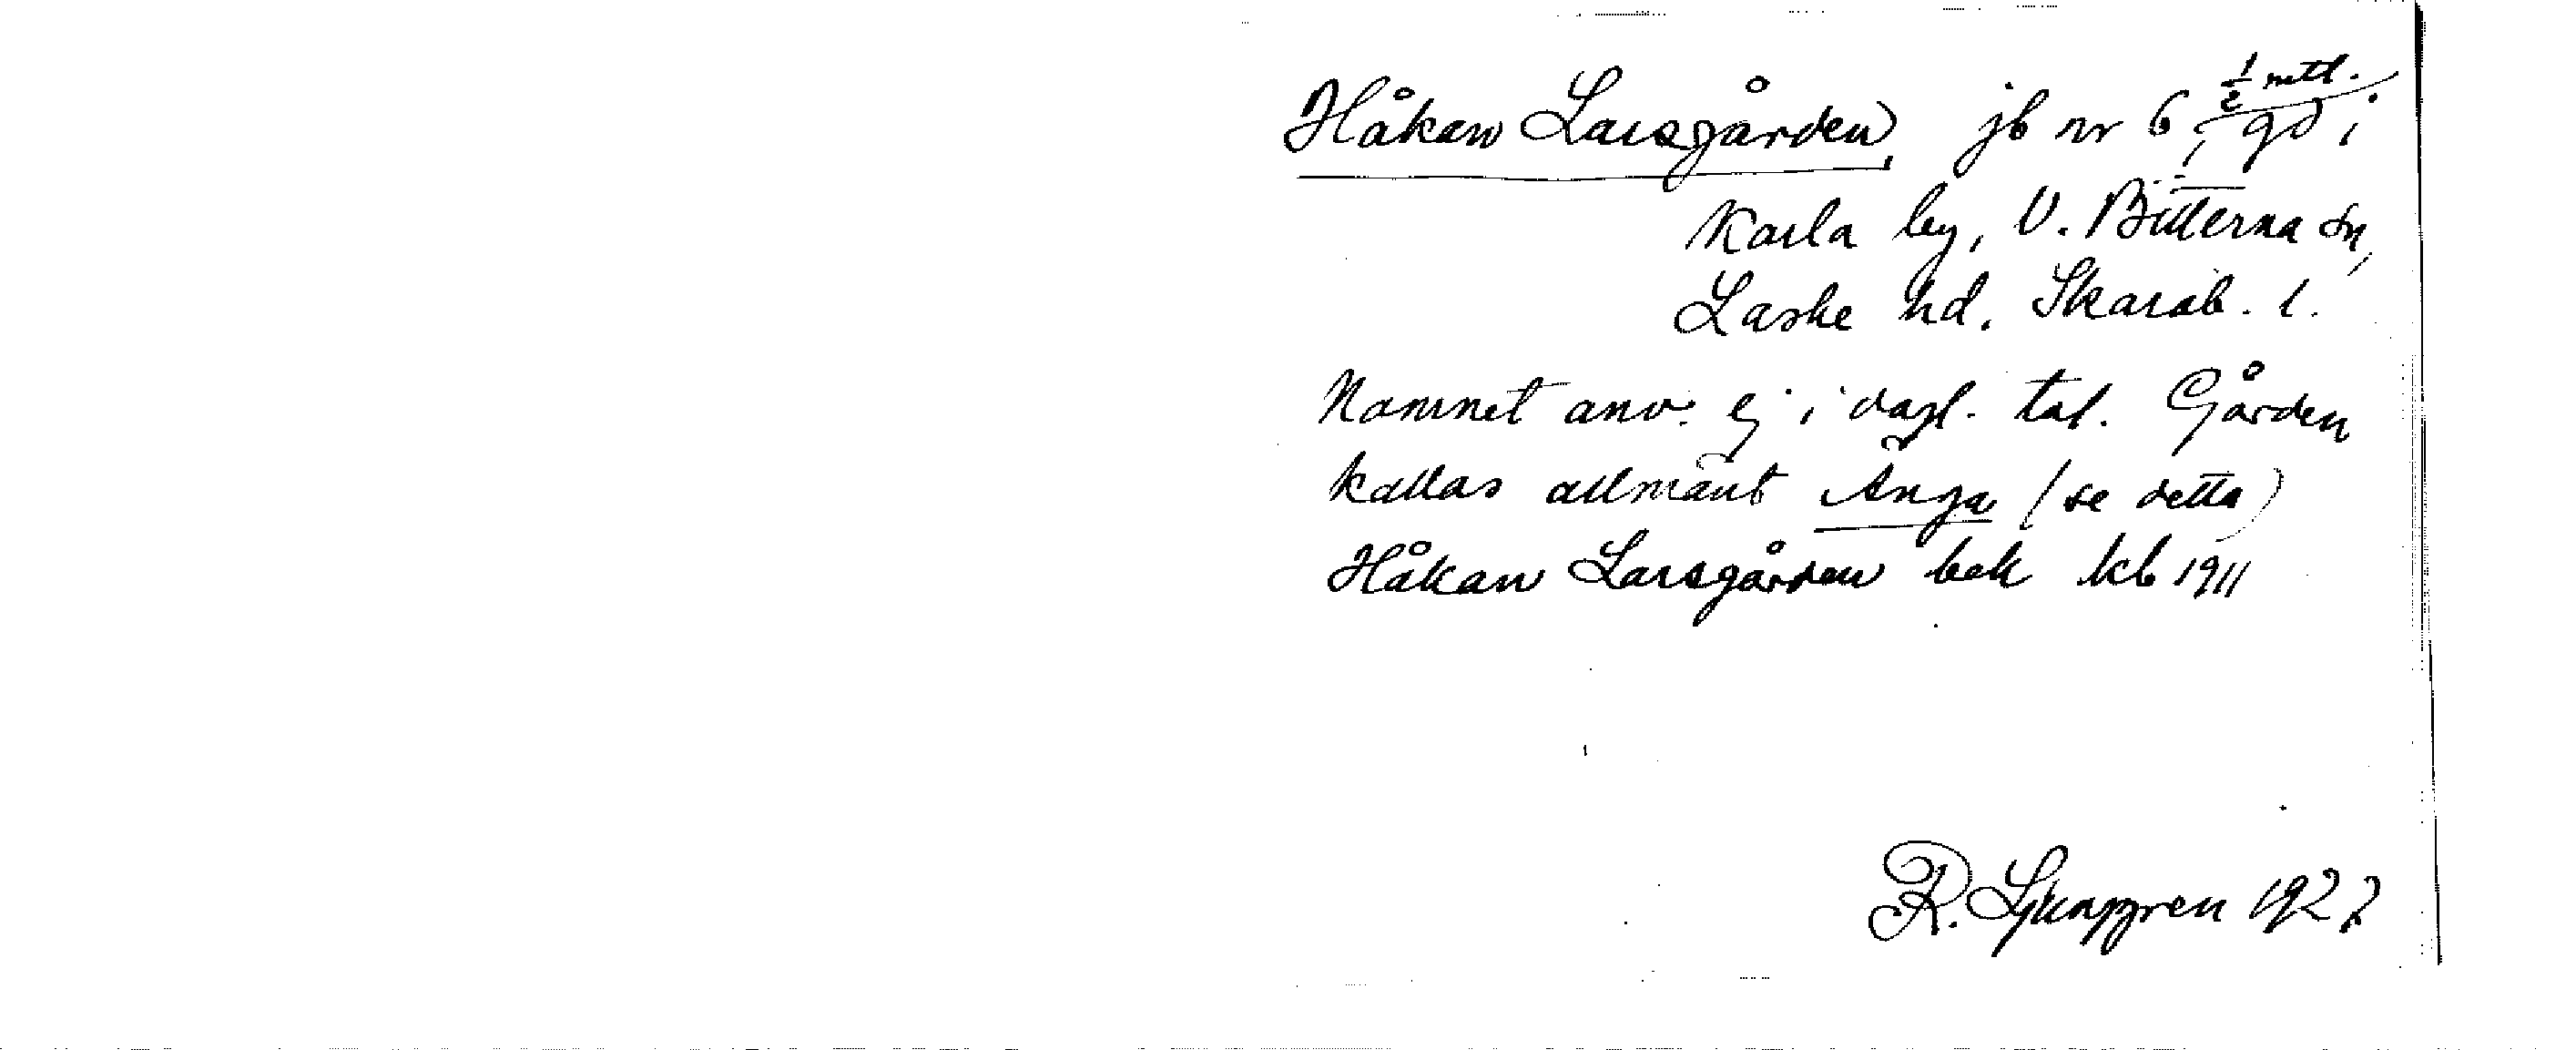 Håkan Larsgården, jb nr 6, 1/2 mtl. gd i
Karla by, V. Bitterna sn,
Laske hd. Skarab. l.
Namnet anv. ej i dagl. tal. Gården
kallas allmänt Änga (se detta)
Håkan Larsgården bok kb 1911
R. Ljunggren 1927